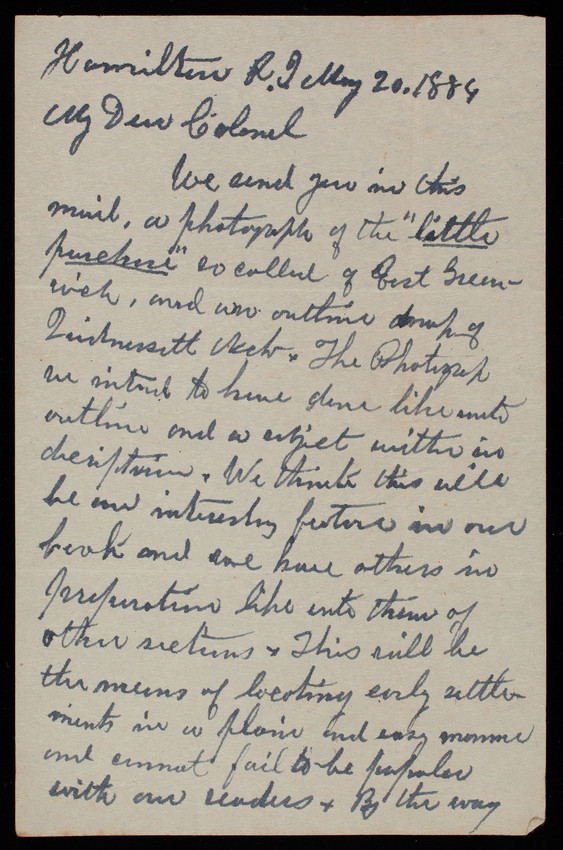 Hamilton R.I May 20. 1884
My Dear Colonel
We send you in this
mail, a photograph of the "little
purchase" so called of East Green-
wich, and an outline map of
Quidnessett &c. The Photograph
we intend to have done like unto
outline and a subject within in
description. We think this will
be an interesting feature in our
book and we have others in
preparation like unto them of
other sections. This will be
the means of locating early settle-
ments in a plain and easy manner
and cannot fail to be popular
with our readers. By the way